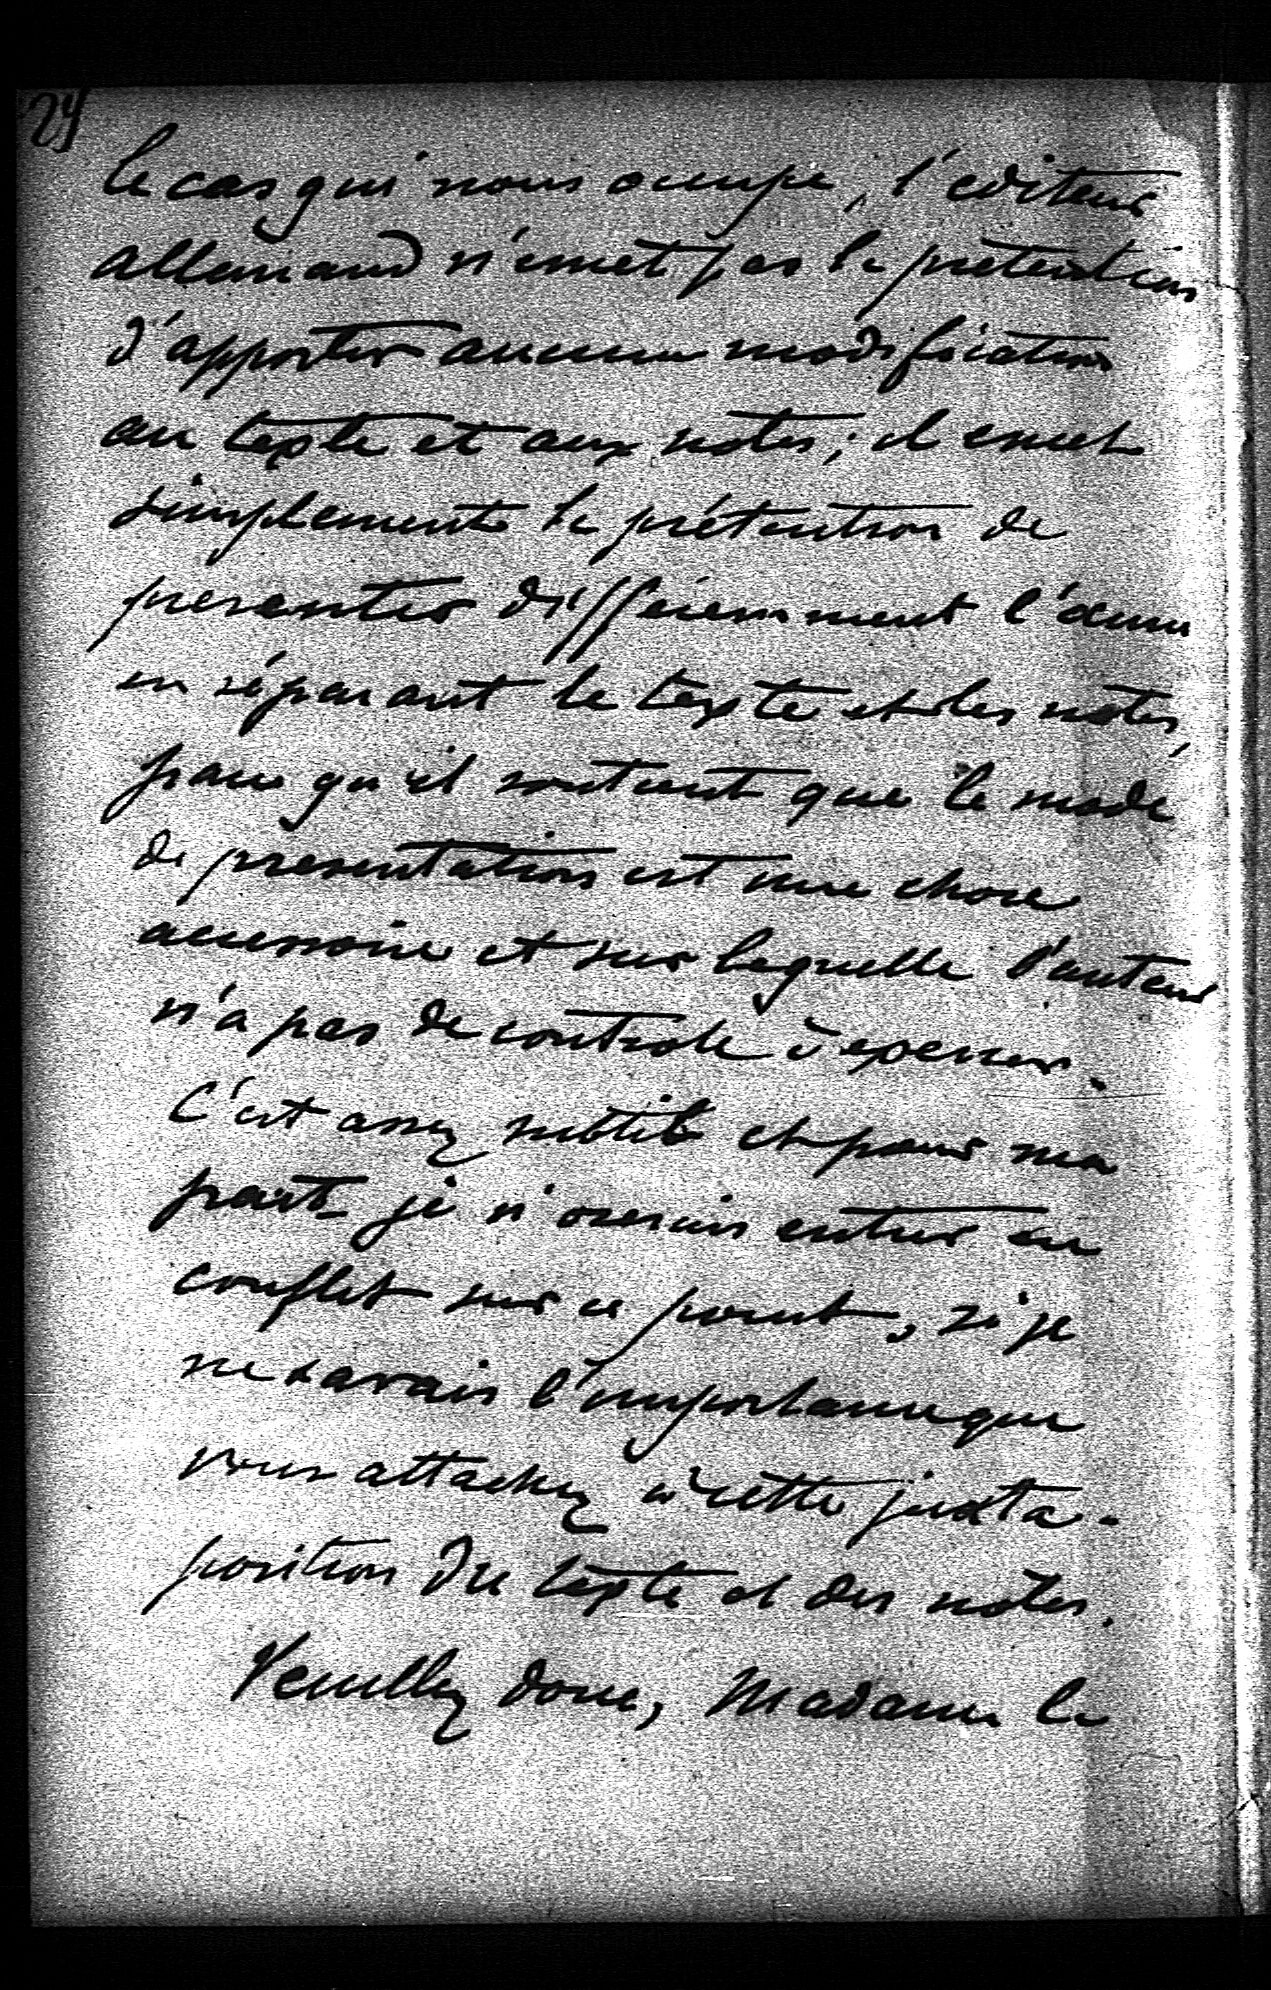 29
le cas qui nous occupe, l'editeur
allemand n'émet pas la prétention
d'apporter aucune modification
au texte et aux notes ; il emet
simplement la prétention de
presenter différemment l'œuvre
en séparant le texte et les notes,
parce qu'il soutient que le mode
de presentation est une chose
accessoire et sur laquelle l'auteur
n'a pas de controle à exercer.
C'est assez subtil et pour ma
part je n'oserais entrer en
conflit sur ce point, si je
ne savais l'importance que
vous attachez à cette juxta-
position du texte et des notes.
Veuillez donc, Madame la